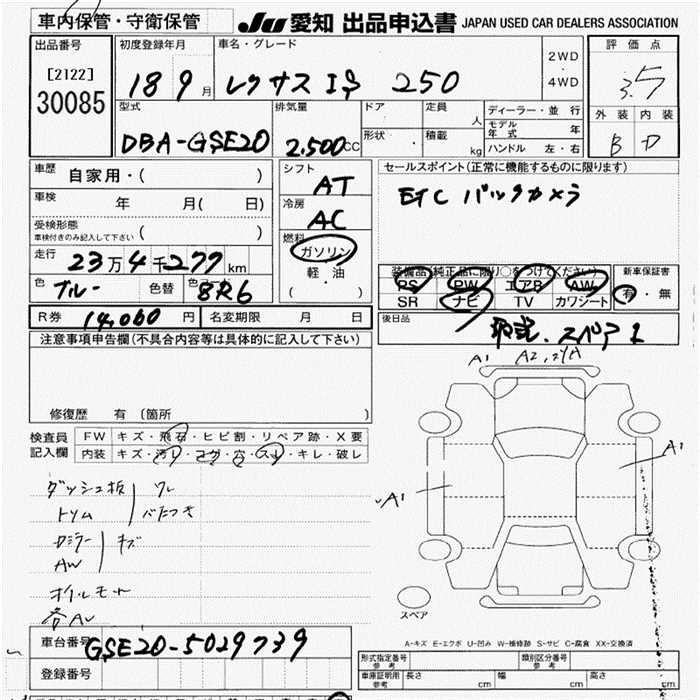 車内保管・守衛保管
JU 愛知 出品申込書 JAPAN USED CAR DEALERS ASSOCIATION
出品番号 初度登録年月 車名・グレード 2WD・4WD 評価点
[2122]
30085 18 9月 レクサス IS 250 3.5
型式 排気量 ドア 定員 人 ディーラー・並行 外装 内装
モデル年式 年
DBA-GSE20 2.500cc 形状 積載 kg ハンドル 左・右 B D
車歴 自家用・( ) シフト AT セールスポイント(正常に機能するものに限ります)
車検 年 月( 日) 冷房 AC ETC バックカメラ
受検形態
車検付きのみ記入して下さい ( ) 燃料 ガソリン
走行 23万4千277km 軽・油 装備品(純正品に限り○をつけてください) 新車保証書
色 ブルー 色替 8R6 (・) PS PW エアB AW 有・無
SR ナビ TV カワシート
R券 14,060円 名変期限 月 日 後日品
取説.スペア1
注意事項申告欄(不具合内容等は具体的に記入して下さい)
A1 A2
修復歴 有 (箇所 )
検査員記入欄 FW キズ・飛石・ヒビ割・リペア跡・X要
内装 キズ・汚レ・コゲ・穴・スレ・キレ・破レ
A1
ダッシュ板 ワレ
A1
トリム べたつき
Dミラー キズ
AW
オイルモレ
各AU
スペア
車台番号 GSE20-5029739
A-キズ E-エクボ U-凹み W-補修跡 S-サビ C-腐食 XX-交換済
登録番号 形式指定番号 参考 類別区分番号 参考
車庫証明用 参考 長さ cm 幅 cm 高さ cm